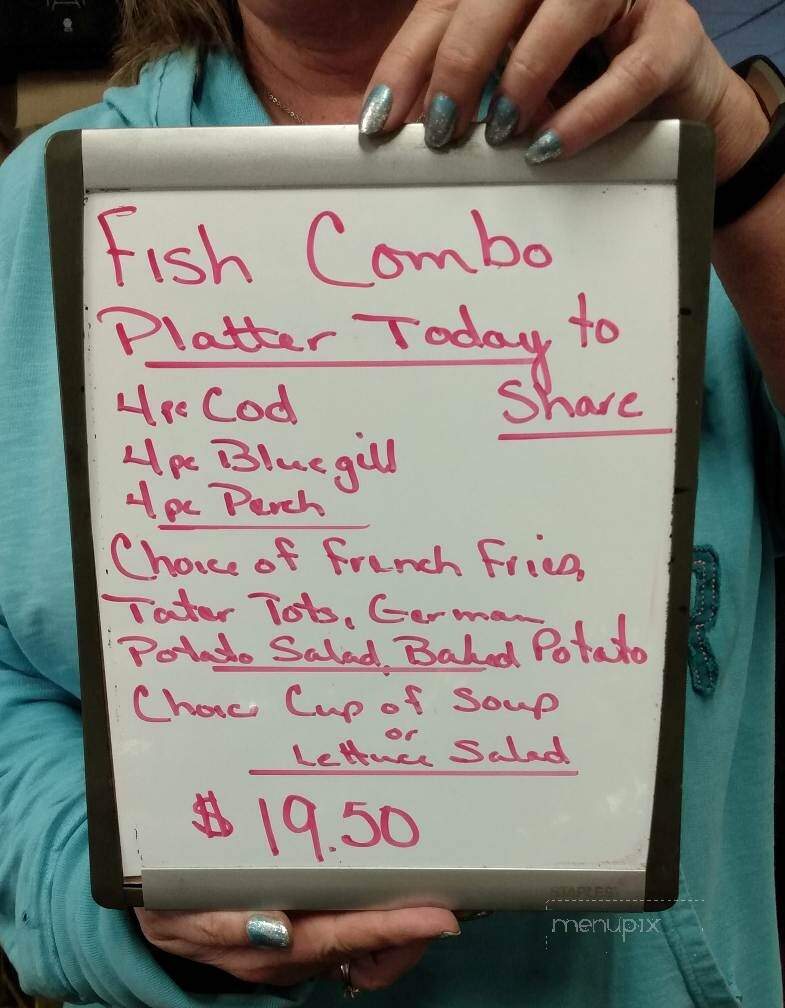 Fish Combo
Platter Today to
Share
4pc Cod
4pc Bluegill
4pc Perch
Choice of French Fries,
Tater Tots, German
Potato Salad, Baked Potato
Choice Cup of Soup
or
Lettuce Salad
$ 19.50
STAPLES
menupix